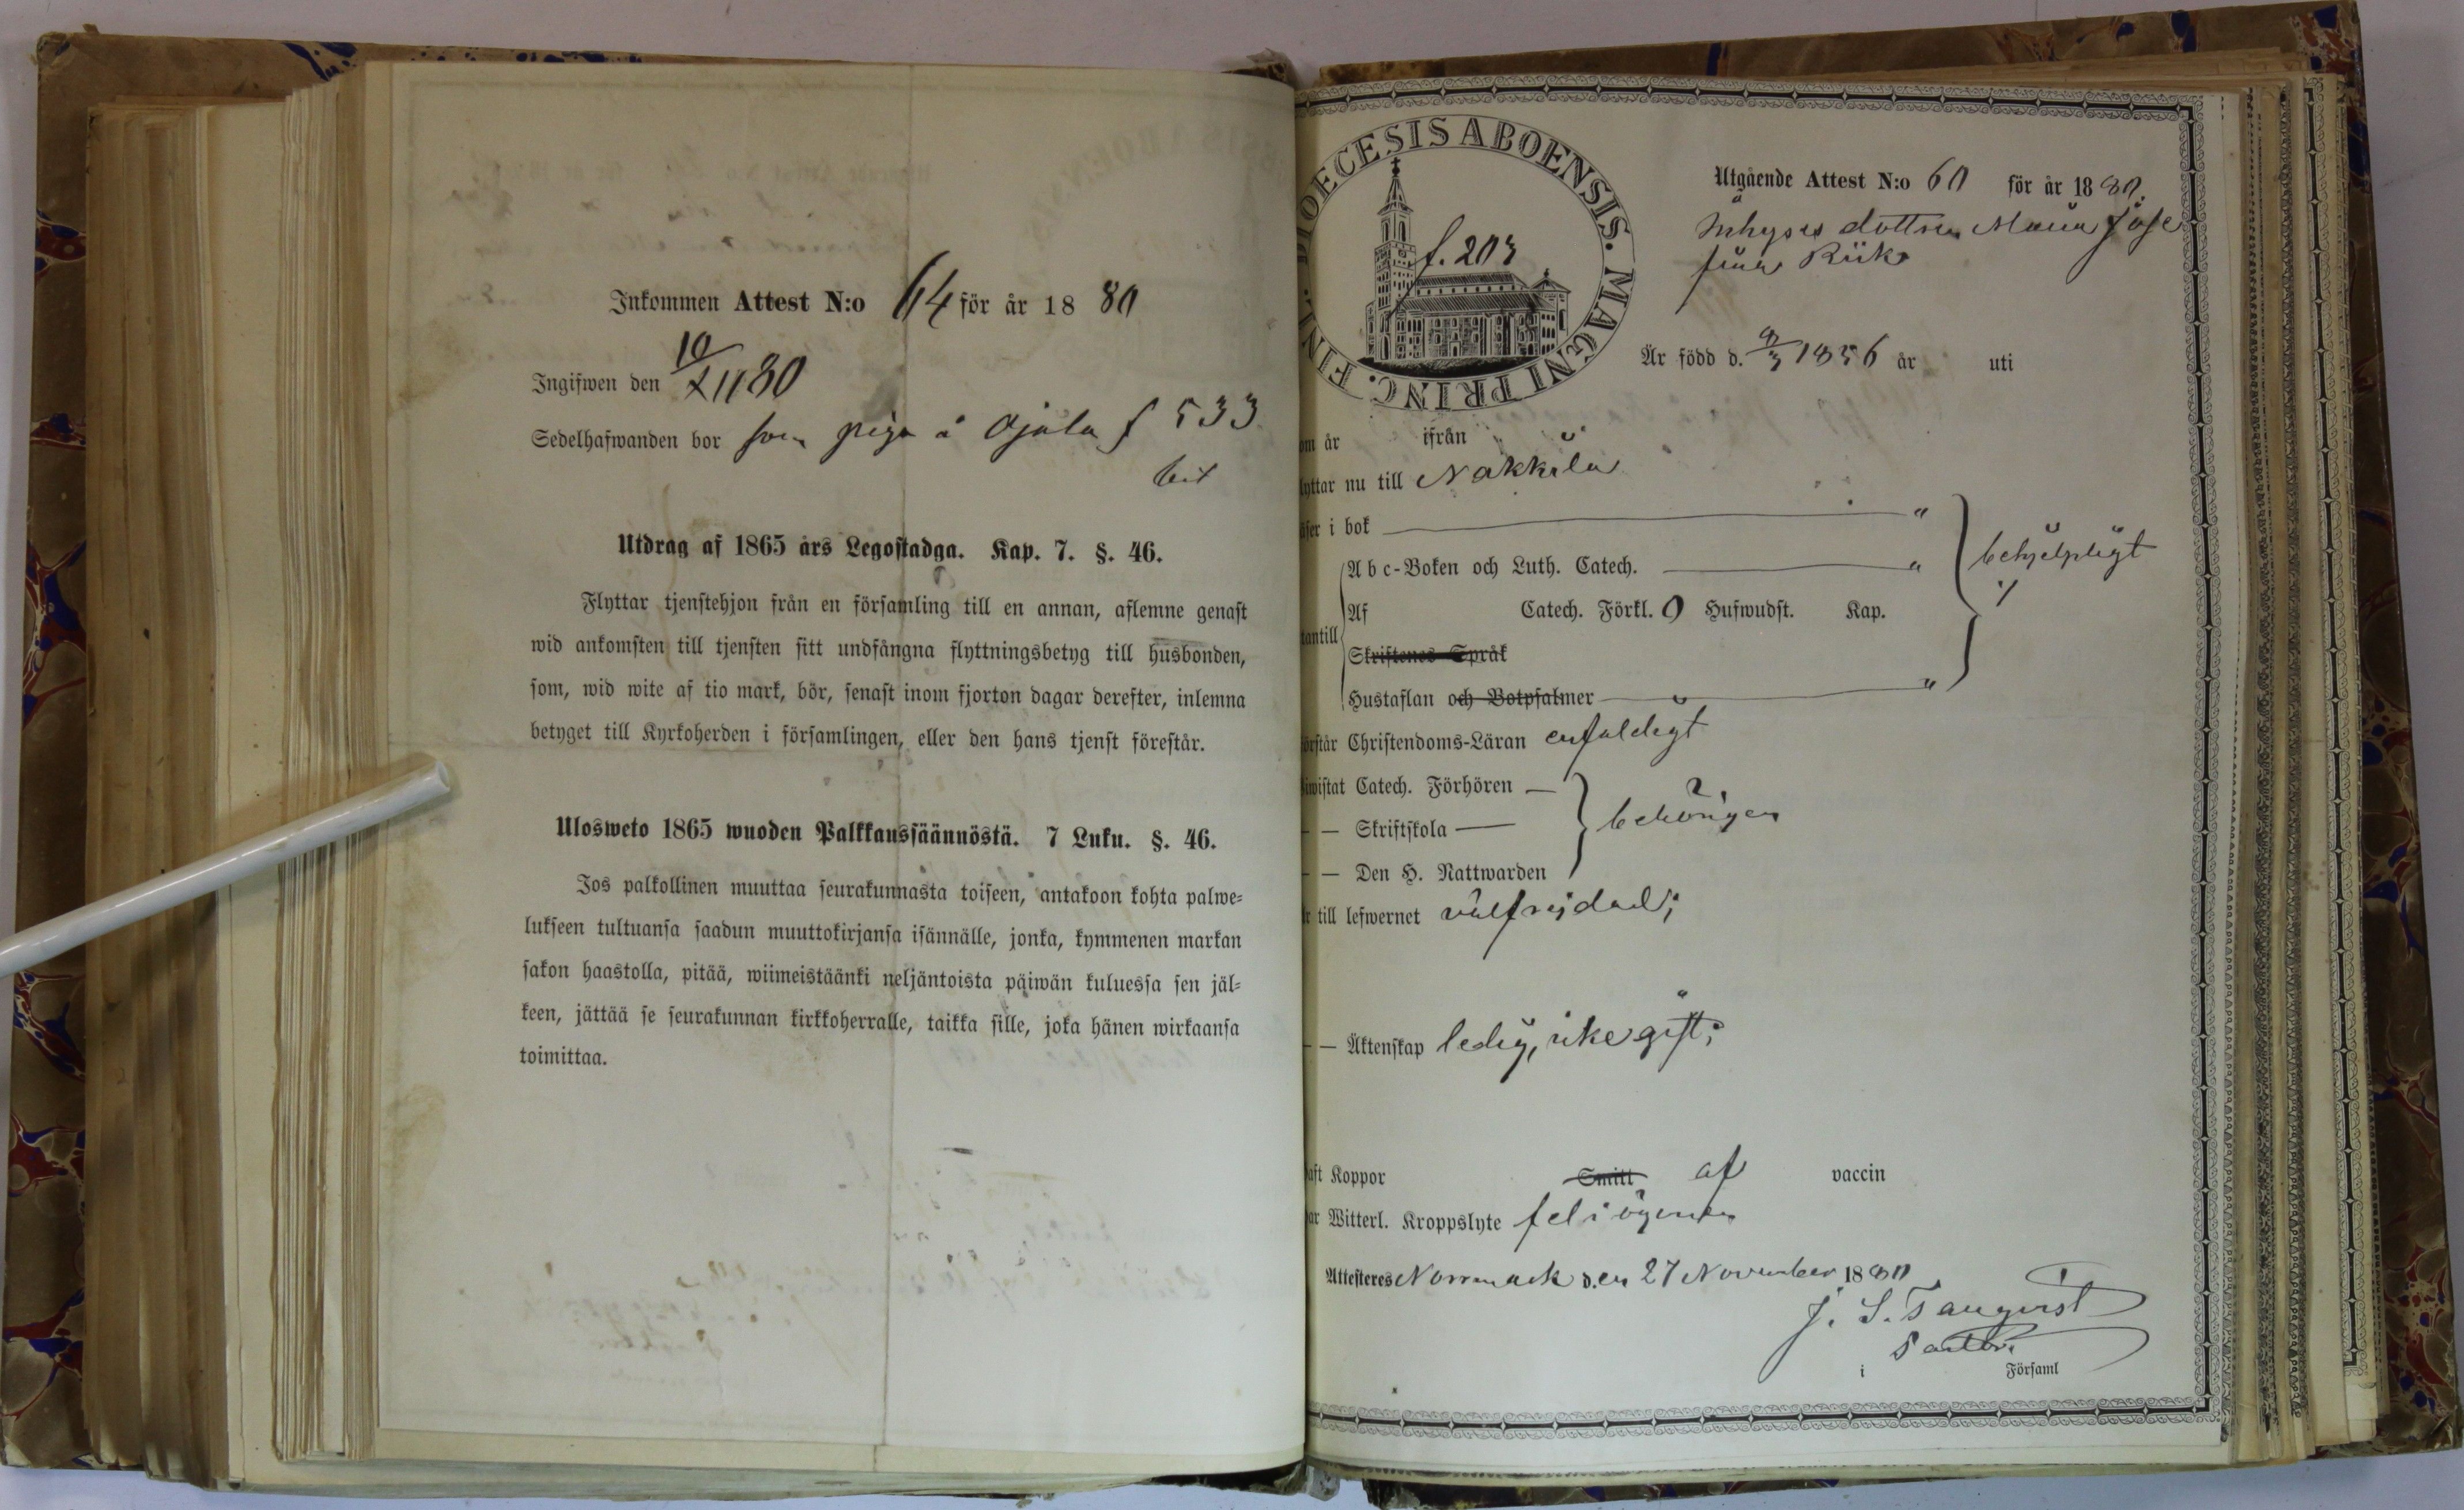 Inkommen Attest N:o 64 för år 1880
Ingifwen den 10/XII 80
Sedelhafwanden bor som piga å Ojala f 533
Utdrag af 1865 års Legostadga. Kap. 7. §. 46.
Flyttar tjenstehjon från en församling till en annan, aflemne genast
wid ankomsten till tjensten sitt undfångna flyttningsbetyg till husbonden,
som, wid wite af tio mark, bör, senast inom fjorton dagar derefter, inlemna
betyget till Kyrkoherden i församlingen, eller den hans tjenst förestår.
Ulosweto 1865 wuoden Palkkaussäännöstä. 7 Luku. §. 46.
Jos palkollinen muuttaa seurakunnasta toiseen, antakoon kohta palwe-
lukseen tultuansa saadun muuttokirjansa isännälle, jonka, kymmenen markan
sakon haastolla, pitää, wiimeistäänki neljäntoista päiwän kuluessa sen jäl-
keen, jättää se seurakunnan kirkkoherralle, taikka sille, joka hänen wirkaansa
toimittaa.
DIOECESIS ABOENSIS. MAGNI PRINC. FINL.
f. 203
Utgående Attest N:o 60 för år 1880.
Inhyses dottren Maria Jose
fina Riik
Är född d. 8/3 1856 år uti
om år ifrån
lyttar nu till Nakkila
äser i bok — "
A b c-Boken och Luth. Catech. — "
behjelpligt
Af Catech. Förkl. 0 Hufwudst. Kap.
tantill
Skriftenes Språk
Hustaflan och Botpsalmer — "
örstår Christendoms-Läran enfaldigt
iwistat Catech. Förhören —
— — Skriftskola — behörigen
— — Den H. Nattwarden
r till lefwernet välfrejdad;
— — Äktenskap ledig, icke gift;
aft Koppor Smitt af vaccin
ar Witterl. Kroppslyte fel i ögonen
Attesteres Norrmark d.en 27 November 1880
J. S. Tanqvist
Pastor.
i Församl